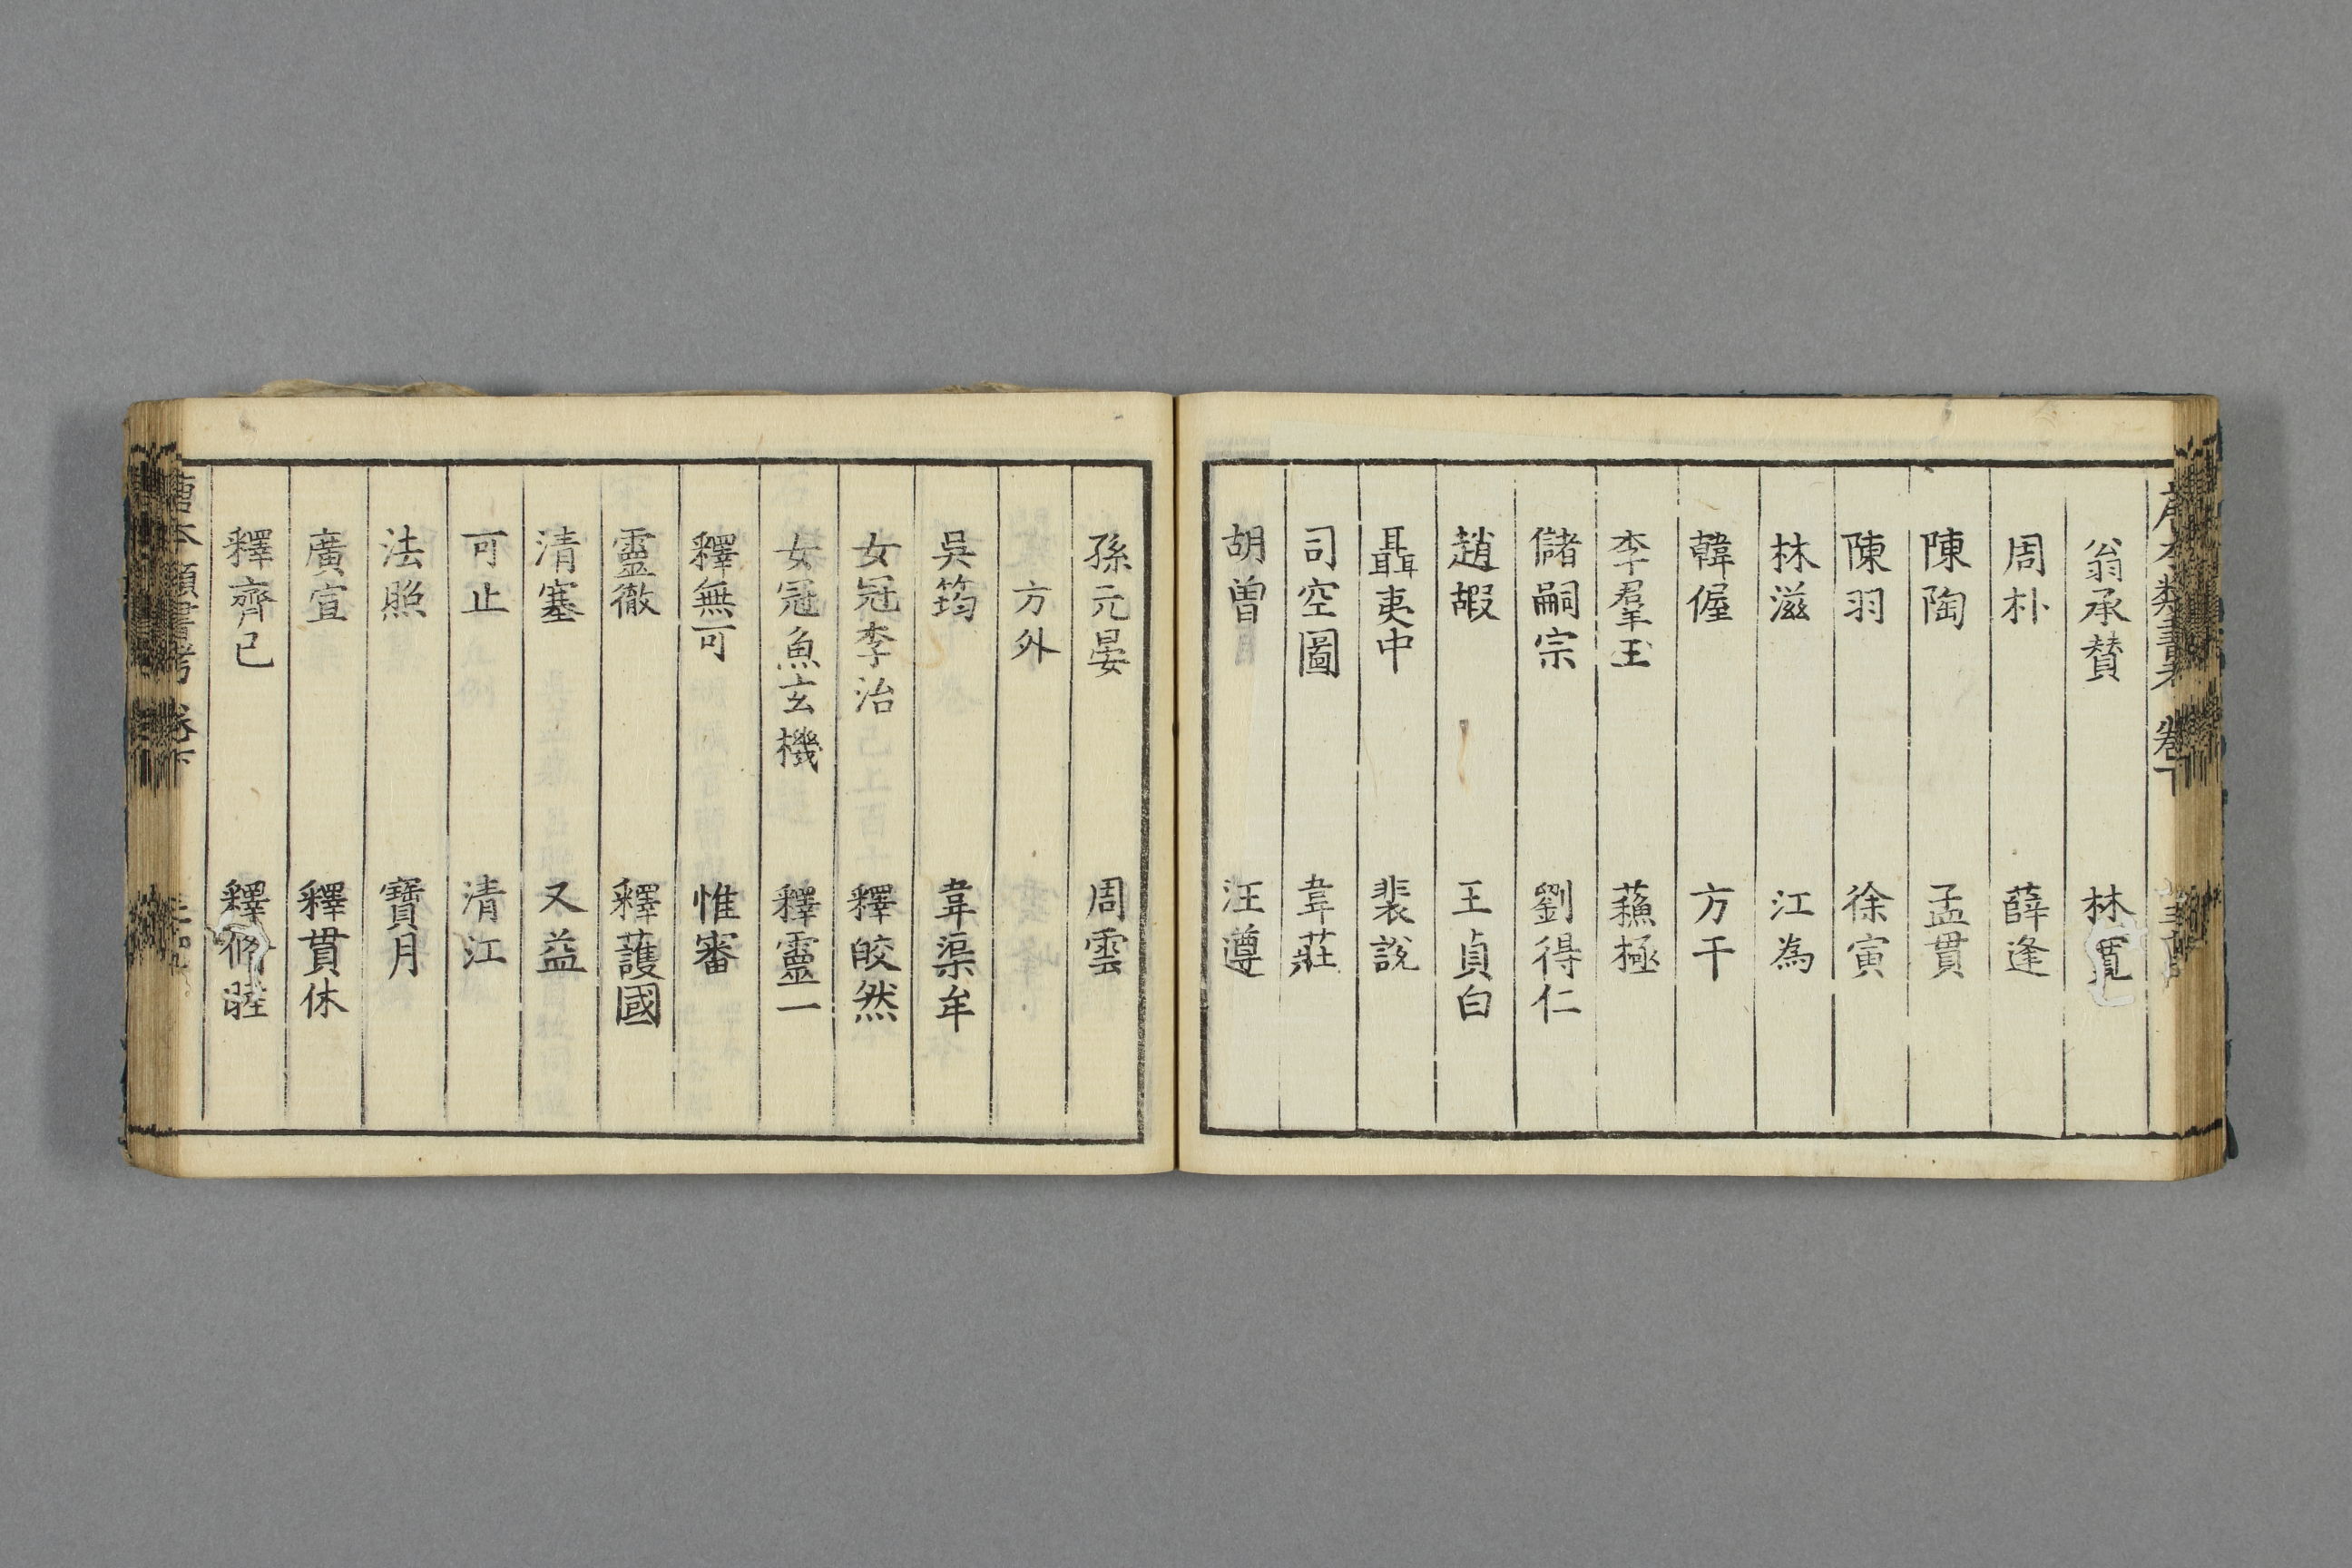 翁承賛 林寛
周朴 薛逢
陳陶 孟貫
陳羽 徐寅
林滋 江為
韓偓 方干
李羣玉 蘓極
儲嗣宗 劉得仁
趙嘏 王貞白
聶夷中 裴説
司空圖 韋莊
胡曽 汪遵
孫元晏 周雲
方外
吳筠 韋渠牟
女冠李治 釋皎然
女冠魚玄機 釋靈一
釋無可 惟審
靈徹 釋護國
清塞 又益
可止 清江
法照 寶月
廣宣 釋貫休
釋齊己 釋脩睦
唐本類書考 卷下